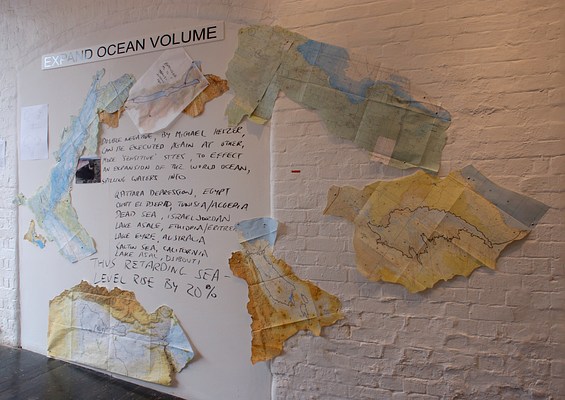 EXPAND OCEAN VOLUME
DOUBLE NEGATIVE, BY MICHAEL HEIZER,
CAN BE EXECUTED AGAIN AT OTHER,
MORE 'SENSITIVE' SITES, TO EFFECT
AN EXPANSION OF THE WORLD OCEAN,
WATERS INTO
QATTARA DEPRESSION, EGYPT
CHOTT EL DJERID, TUNISIA/ALGERIA
DEAD SEA, ISRAEL/JORDAN
LAKE ASALE, ETHIOPIA/ERITREA
LAKE EYRE, AUSTRALIA
SALTON SEA, CALIFORNIA
LAKE ASAL, DJIBOUTI
THUS RETARDING SEA-
LEVEL RISE BY 20%